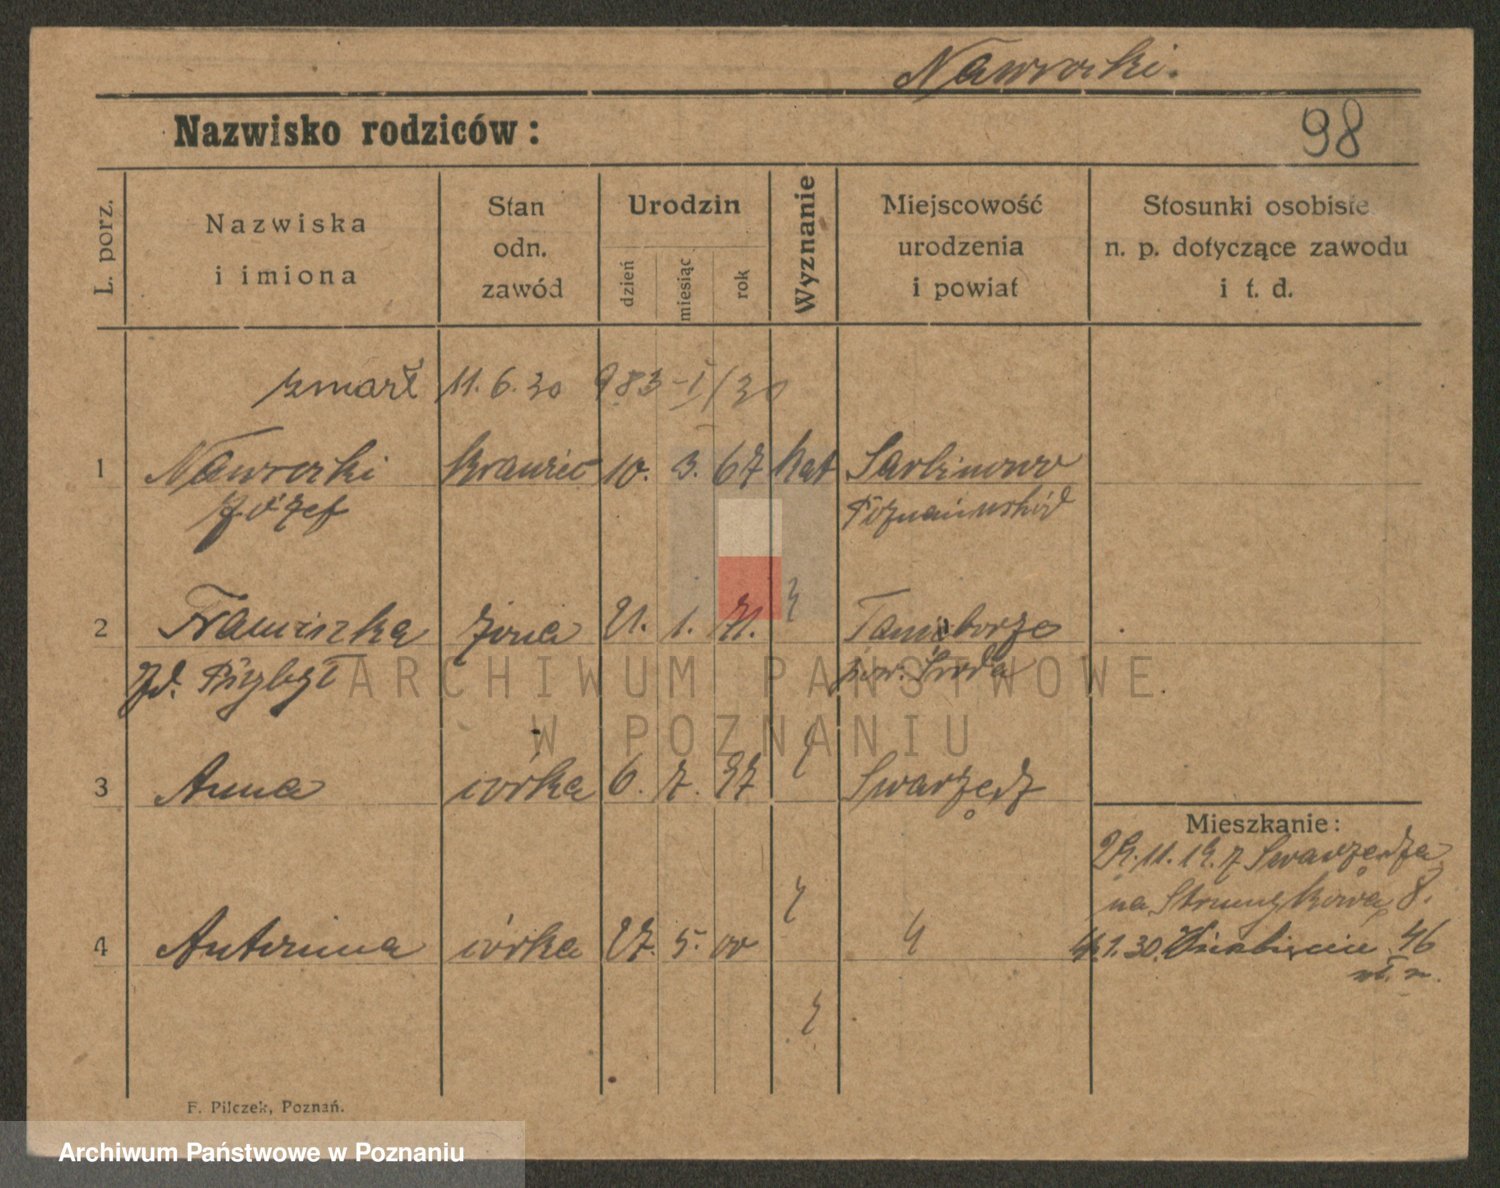 Nawrocki.
Nazwisko rodziców:
98
L. porz.
Nazwiska
i imiona
Stan
odn.
zawód
Urodzin
dzień
miesiąc
rok
Wyznanie
Miejscowość
urodzenia
i powiat
Stosunki osobiste
n. p. dotyczące zawodu
i t. d.
zmarł 11.6.30 983-I/30
1 Nawrocki krawiec 10. 3. 67 kat Sarbinowo
Józef
2 Franciszka żona 21. 1. 71. Tanibórze
zd. Przybył pow. Środa
ARCHIWUM PAŃSTWOWE
W POZNANIU
3 Anna córka 6. 7. 97 Swarzędz
Mieszkanie:
29.11.19. z Swarzędza
na 8.
4 Antonina córka 27. 5. 00
1.30. 46
F. Pilczek, Poznań.
Archiwum Państwowe w Poznaniu